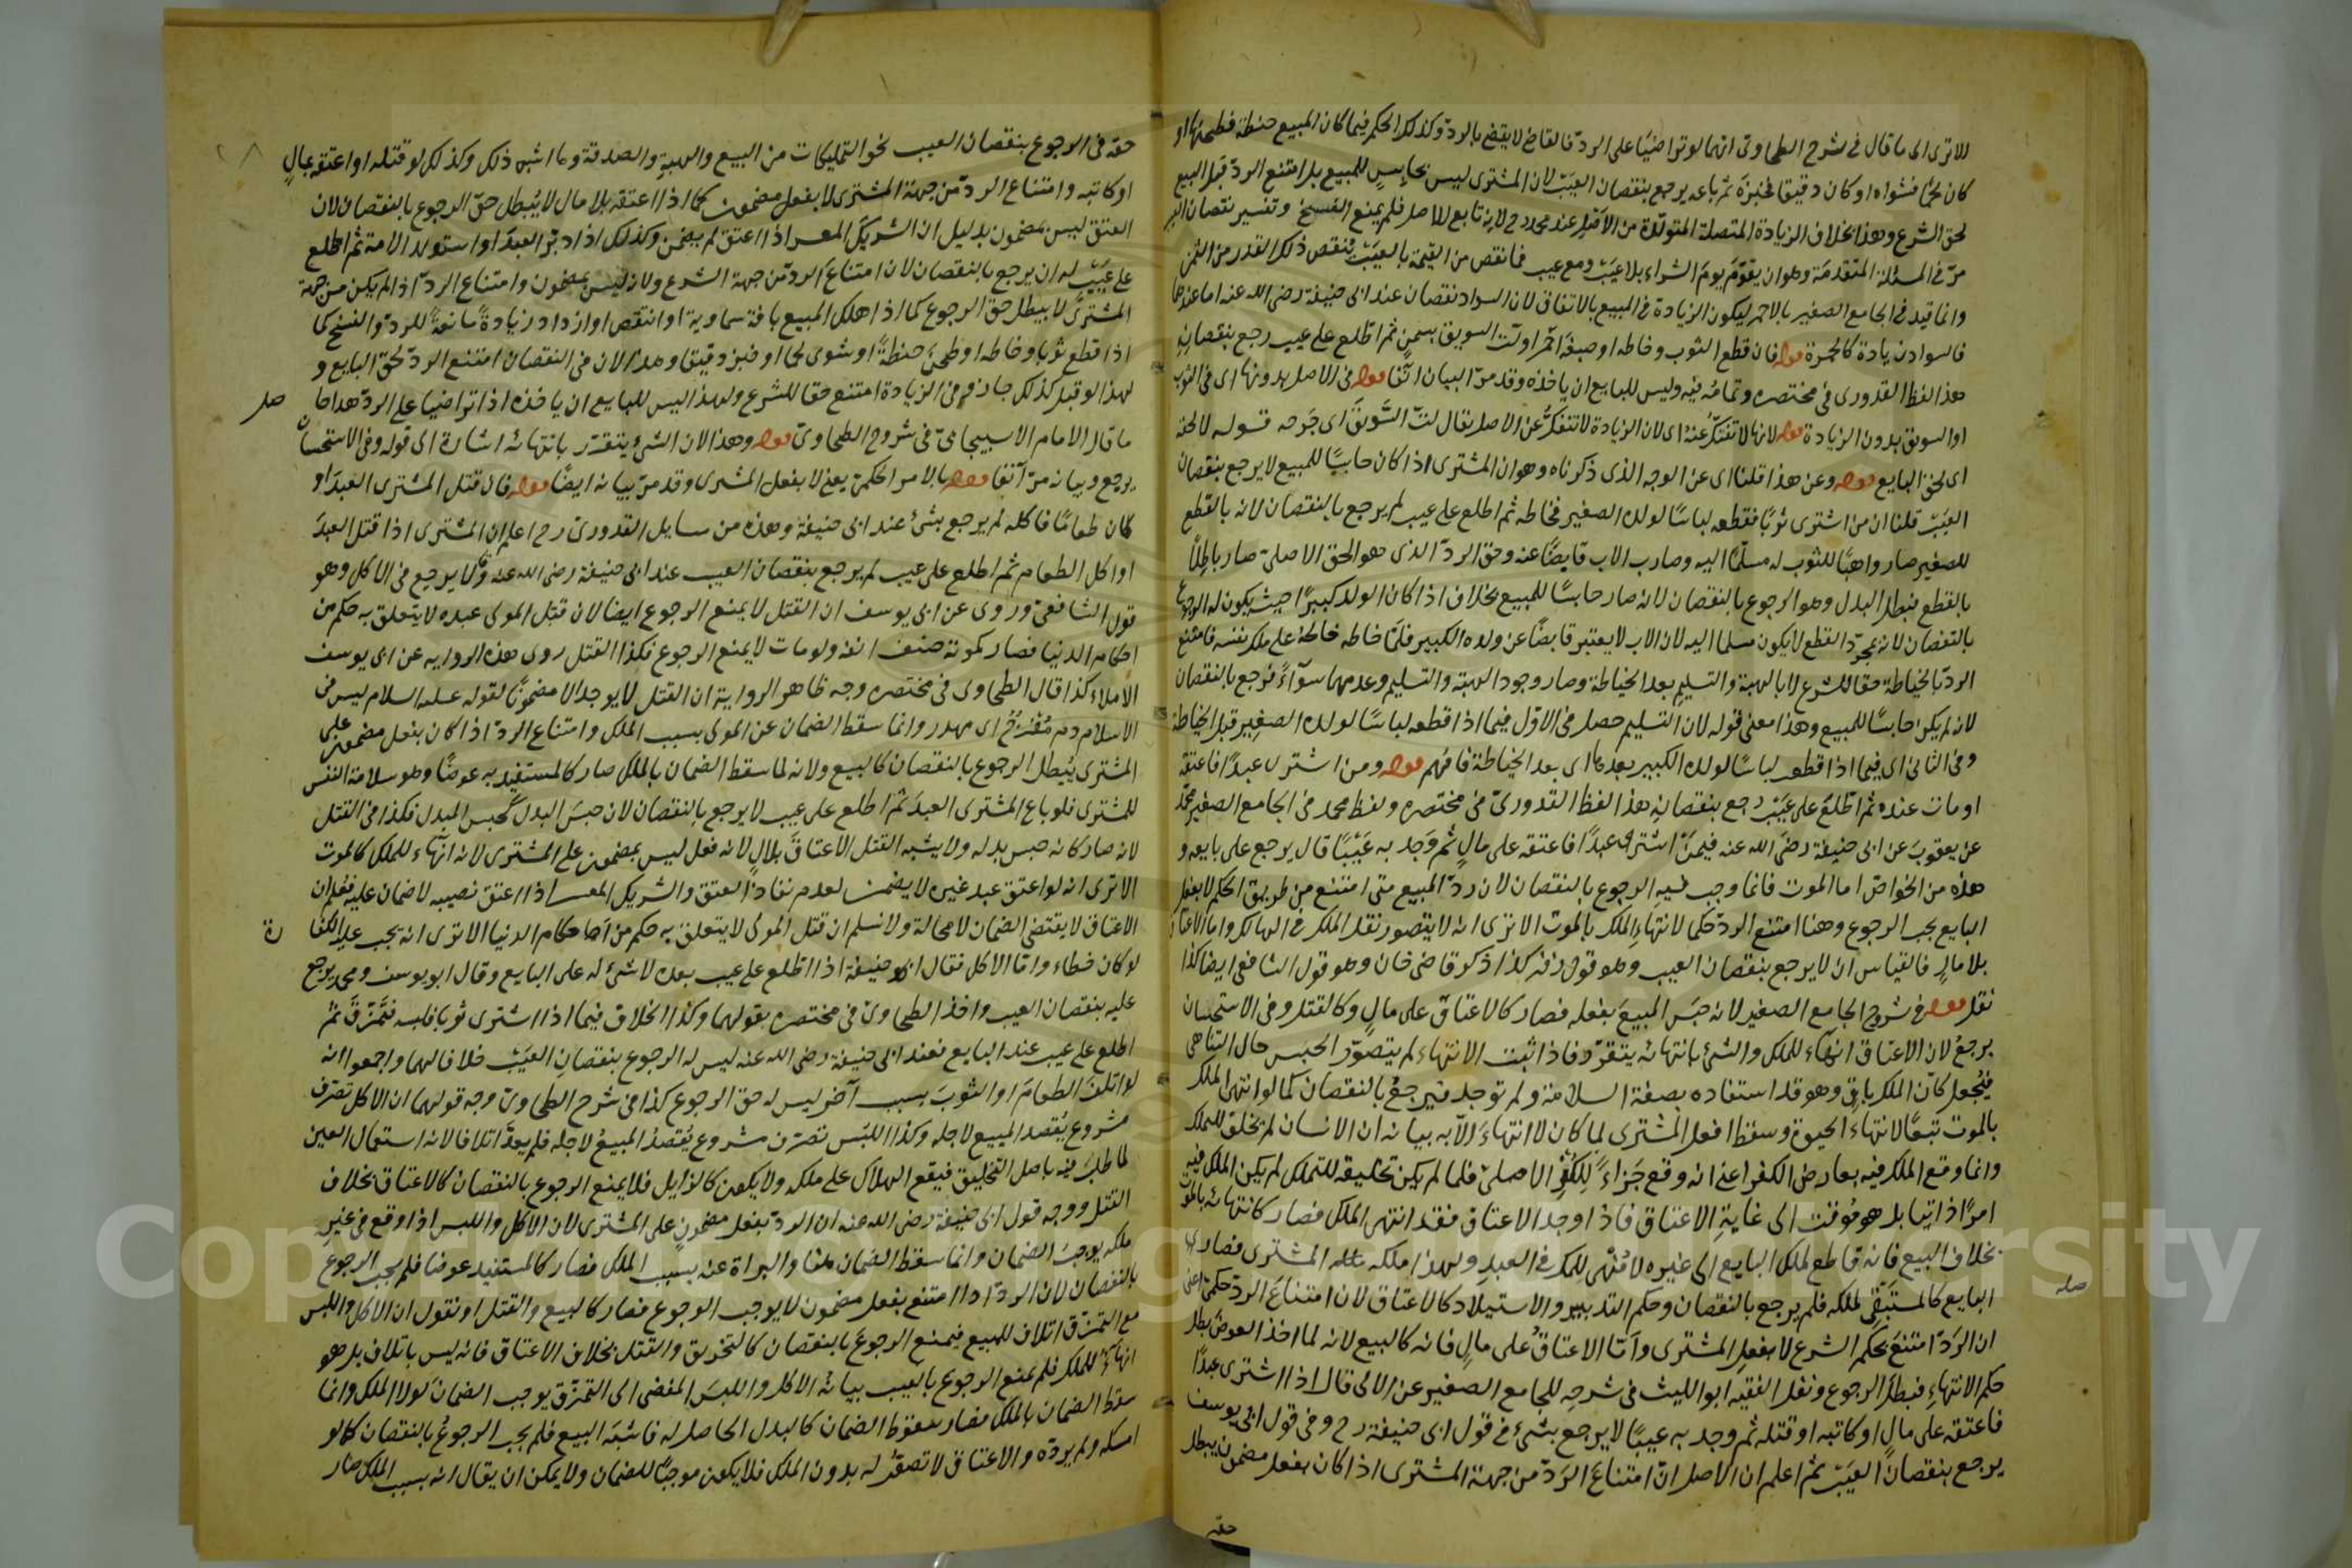 الا ترى الى ما قال في شرح الطحاوي انهما لو تراضيا على الرد فالقاضي لا يقضي بالرد وكذلك الحكم فيما كان المبيع حنطة فطحنها او
كان لحما فشواه او كان دقيقا فخبزه ثم باعه يرجع بنقصان العيب لان المشتري ليس بحابس للمبيع بل امتنع الرد قبل البيع
لحق الشرع وهذا بخلاف الزيادة المتصلة المتولدة من الاصل عند محمد رح لانه تابع للاصل فلم يمنع الفسخ وتفسير نقصان العيب
مر في المسئلة المتقدمة وهو ان يقوم يوم الشراء بلا عيب ومع عيب فما نقص من القيمة بالعيب ينقص ذلك القدر من الثمن
وانما قيد في الجامع الصغير بالاحمر ليكون الزيادة في المبيع بالاتفاق لان السواد نقصان عند ابي حنيفة رضي الله عنه اما عندهما
فالسواد زيادة كالحمرة قوله فان قطع الثوب وخاطه او صبغه احمر او لت السويق بسمن ثم اطلع على عيب رجع بنقصانه
هذا لفظ القدوري في مختصره وتمامه فيه وليس للبايع ان ياخذه وقد مر البيان آنفا قوله في الاصل بدونها اي في الثوب
او السويق بدون الزيادة قوله لانها لا تنفك عنه اي لان الزيادة لا تنفك عن الاصل يقال لت السويق اي جدحه قوله لا لحقه
اي لحق البايع قوله وعن هذا قلنا اي عن الوجه الذي ذكرناه وهو ان المشتري اذا كان حابسا للمبيع لا يرجع بنقصان
العيب قلنا ان من اشترى ثوبا فقطعه لباسا لولده الصغير فخاطه ثم اطلع على عيب لم يرجع بالنقصان لانه بالقطع
للصغير صار واهبا للثوب له مسلما اليه وصار الاب قابضا عنه وحق الرد الذي هو الحق الاصلي صار باطلا
بالقطع فبطل البدل وهو الرجوع بالنقصان لانه صار حابسا للمبيع بخلاف اذا كان الولد كبيرا حيث يكون له الرجوع
بالنقصان لانه بمجرد القطع لا يكون مسلما اليه لان الاب لا يعتبر قابضا عن ولده الكبير فلما خاطه خاطه على ملك نفسه فامتنع
الرد بالخياطة حقا للشرع لا بالهبة والتسليم بعد الخياطة وصار وجود الهبة والتسليم وعدمهما سواء فرجع بالنقصان
لانه لم يكن حابسا للمبيع وهذا معنى قوله لان التسليم حصل في الاول فيما اذا قطعه لباسا لولده الصغير قبل الخياطة
وفي الثاني اي فيما اذا قطعه لباسا لولده الكبير بعدها اي بعد الخياطة فافهم قوله ومن اشترى عبدا فاعتقه
او مات عنده ثم اطلع على عيب رجع بنقصانه هذا لفظ القدوري في مختصره ولفظ محمد في الجامع الصغير محمد
عن يعقوب عن ابي حنيفة رضي الله عنه فيمن اشترى عبدا فاعتقه على مال ثم وجد به عيبا قال يرجع على بايعه و
هذه من الخواص اما الموت فانما وجب فيه الرجوع بالنقصان لان رد المبيع متى امتنع من طريق الحكم لا بفعل
البايع يجب الرجوع وهنا امتنع الرد حكما لانتهاء الملك بالموت الا ترى انه لا يتصور نقل الملك في الهالك واما الاعتاق
بلا مال فالقياس ان لا يرجع بنقصان العيب وهو قول زفر كذا ذكر قاضي خان وهو قول الشافعي ايضا كذا
نقل قوله في شروح الجامع الصغير لانه حبس المبيع بفعله فصار كالاعتاق على مال وكالقتل وفي الاستحسان
يرجع لان الاعتاق انهاء للملك والشئ بانتهائه يتقرر فاذا ثبت الانتهاء لم يتصور الحبس حال التناهي
فيجعل كان الملك باق وهو قد استفاده بصفة السلامة ولم توجد فيرجع بالنقصان كما لو انتهى الملك
بالموت تبعا لانتهاء الحيوة وسقط فعل المشتري لما كان لا انتهاء الا به بيانه ان الانسان لم يخلق للتملك
وانما وقع الملك فيه بعارض الكفر اعني انه وقع جزاء للكفر الاصلي فلما لم يكن تخليقه للتملك لم يكن الملك فيه
امرا ذاتيا بل هو موقت الى غاية الاعتاق فاذا وجد الاعتاق فقد انتهى الملك فصار كانتهائه بالموت
بخلاف البيع فانه قاطع لملك البايع الى غيره لا منهي للملك في العبد ولهذا ملكه المشتري فصار
البايع كالمستبقي لملكه فلم يرجع بالنقصان وحكم التدبير والاستيلاد كالاعتاق لان امتناع الرد حكمي اعني
ان الرد امتنع بحكم الشرع لا بفعل المشتري واما الاعتاق على مال فانه كالبيع لانه لما اخذ العوض بطل
حكم الانتهاء فبطل الرجوع ونقل الفقيه ابو الليث في شرحه للجامع الصغير عن الامالي قال اذا اشترى عبدا
فاعتقه على مال او كاتبه او قتله ثم وجد به عيبا لا يرجع بشئ في قول ابي حنيفة رح وفي قول ابي يوسف
يرجع بنقصان العيب ثم اعلم ان الاصل ان امتناع الرد من جهة المشتري اذا كان بفعل مضمون يبطل
حقه
حقه في الرجوع بنقصان العيب نحو التمليكات من البيع والهبة والصدقة وما اشبه ذلك وكذلك لو قتله او اعتقه بمال
او كاتبه وامتناع الرد من جهة المشتري لا بفعل مضمون كما اذا اعتقه بلا مال لا يبطل حق الرجوع بالنقصان لان
العتق ليس بمضمون بدليل ان الشريك المعسر اذا اعتق لم يضمن وكذلك اذا دبر العبد او استولد الامة ثم اطلع
على عيب له ان يرجع بالنقصان لان امتناع الرد من جهة الشرع ولانه ليس بمضمون وامتناع الرد اذا لم يكن من جهة
المشتري لا يبطل حق الرجوع كما اذا هلك المبيع بافة سماوية او انتقص او ازداد زيادة مانعة للرد والفسخ كما
اذا قطع ثوبا وخاطه او طحن حنطة او شوى لحما او خبز دقيقا وهذا لان في النقصان امتنع الرد لحق البايع و
لهذا لو قبل كذلك جاز وفي الزيادة امتنع حقا للشرع ولهذا ليس للبايع ان ياخذه اذا تراضيا على الرد هذا حاصل
ما قال الامام الاسبيجابي في شروح الطحاوي قوله وهذا لان الشئ يتقرر بانتهائه اشارة الى قوله وفي الاستحسان
يرجع وبيانه مر آنفا قوله بالامر الحكمي يعني لا بفعل المشتري وقد مر بيانه ايضا قوله فان قتل المشتري العبد او
كان طعاما فاكله لم يرجع بشئ عند ابي حنيفة وهذه من مسايل القدوري رح اعلم ان المشتري اذا قتل العبد
او اكل الطعام ثم اطلع على عيب لم يرجع بنقصان العيب عند ابي حنيفة رضي الله عنه وقالا يرجع في الاكل وهو
قول الشافعي وروي عن ابي يوسف ان القتل لا يمنع الرجوع ايضا لان قتل المولى عبده لا يتعلق به حكم من
احكام الدنيا فصار كموته حتف انفه ولو مات لا يمنع الرجوع فكذا القتل روى هذه الرواية عن ابي يوسف
الاملاء كذا قال الطحاوي في مختصره وجه ظاهر الرواية ان القتل لا يوجد الا مضمونا لقوله عليه السلام ليس في
الاسلام دم مفرج اي مهدر وانما سقط الضمان عن المولى بسبب الملك وامتناع الرد اذا كان بفعل مضمون على
المشتري يبطل الرجوع بالنقصان كالبيع ولانه لما سقط الضمان بالملك صار كالمستفيد به عوضا وهو سلامة النفس
للمشتري فلو باع المشتري العبد ثم اطلع على عيب لا يرجع بالنقصان لان حبس البدل كحبس المبدل فكذا في القتل
لانه صار كانه حبس بدله ولا يشبه القتل الاعتاق بلا مال لانه فعل ليس بمضمون على المشتري لانه انهاء للملك كالموت
الا ترى انه لو اعتق عبد غيره لا يضمن لعدم نفاذ العتق والشريك المعسر اذا اعتق نصيبه لا ضمان عليه فعلم ان
الاعتاق لا يقتضي الضمان لا محالة ولا نسلم ان قتل المولى لا يتعلق به حكم من احكام الدنيا الا ترى انه يجب عليه الكفارة
لو كان خطاء واما الاكل فقال ابو حنيفة اذا اطلع على عيب بعده لا شئ له على البايع وقال ابو يوسف ومحمد يرجع
عليه بنقصان العيب واخذ الطحاوي في مختصره بقولهما وكذا الخلاف فيما اذا اشترى ثوبا فلبسه فتمزق ثم
اطلع على عيب عند البايع فعند ابي حنيفة رضي الله عنه ليس له الرجوع بنقصان العيب خلافا لهما واجمعوا انه
لو اتلف الطعام او الثوب بسبب آخر ليس له حق الرجوع كذا في شرح الطحاوي وجه قولهما ان الاكل تصرف
مشروع يقصد المبيع لاجله وكذا اللبس تصرف مشروع يقصد المبيع لاجله فلم يعد اتلافا لانه استعمال العين
لما طلب فيه باصل التخليق فيقع الهلاك على ملكه ولا يكون كالزايل فلا يمنع الرجوع بالنقصان كالاعتاق بخلاف
القتل ووجه قول ابي حنيفة رضي الله عنه ان الرد بفعل مضمون على المشتري لان الاكل واللبس اذا وقع في غير
ملكه يوجب الضمان وانما سقط الضمان هنا والبراة عنه بسبب الملك فصار كالمستفيد عوضا فلم يجب الرجوع
بالنقصان لان الرد اذا امتنع بفعل مضمون لا يوجب الرجوع فصار كالبيع والقتل او نقول ان الاكل واللبس
مع التمزق اتلاف للمبيع فيمنع الرجوع بالنقصان كالتخريق والقتل بخلاف الاعتاق فانه ليس باتلاف بل هو
انهاء للملك فلم يمنع الرجوع بالعيب بيانه الاكل واللبس المفضي الى التمزق يوجب الضمان لولا الملك وانما
سقط الضمان بالملك فصار سقوط الضمان كالبدل الحاصل له فاشبه البيع فلم يجب الرجوع بالنقصان كما لو
امسكه ولم يرده والاعتاق لا تصور له بدون الملك فلا يكون موجبا للضمان ولا يمكن ان يقال انه بسبب الملك صار